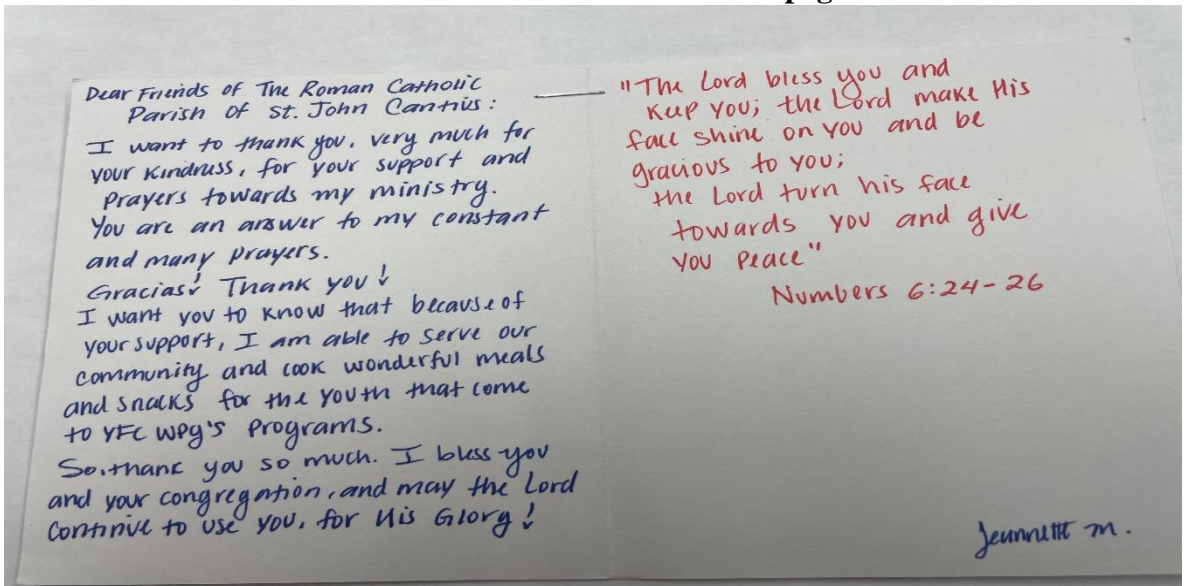 Dear Friends of The Roman Catholic
Parish of St. John Cantius:
I want to thank you, very much for
your kindness, for your support and
Prayers towards my ministry.
You are an answer to my constant
and many Prayers.
Gracias! Thank you!
I want you to know that because of
your support, I am able to serve our
community and cook wonderful meals
and snacks for the youth that come
to YFC Wpg's Programs.
So, thank you so much. I bless you
and your congregation, and may the Lord
continue to use you, for His Glory!
"The Lord bless you and
Keep you; the Lord make His
face shine on you and be
gracious to you;
the Lord turn his face
towards you and give
you peace"
Numbers 6:24-26
Jeannette M.